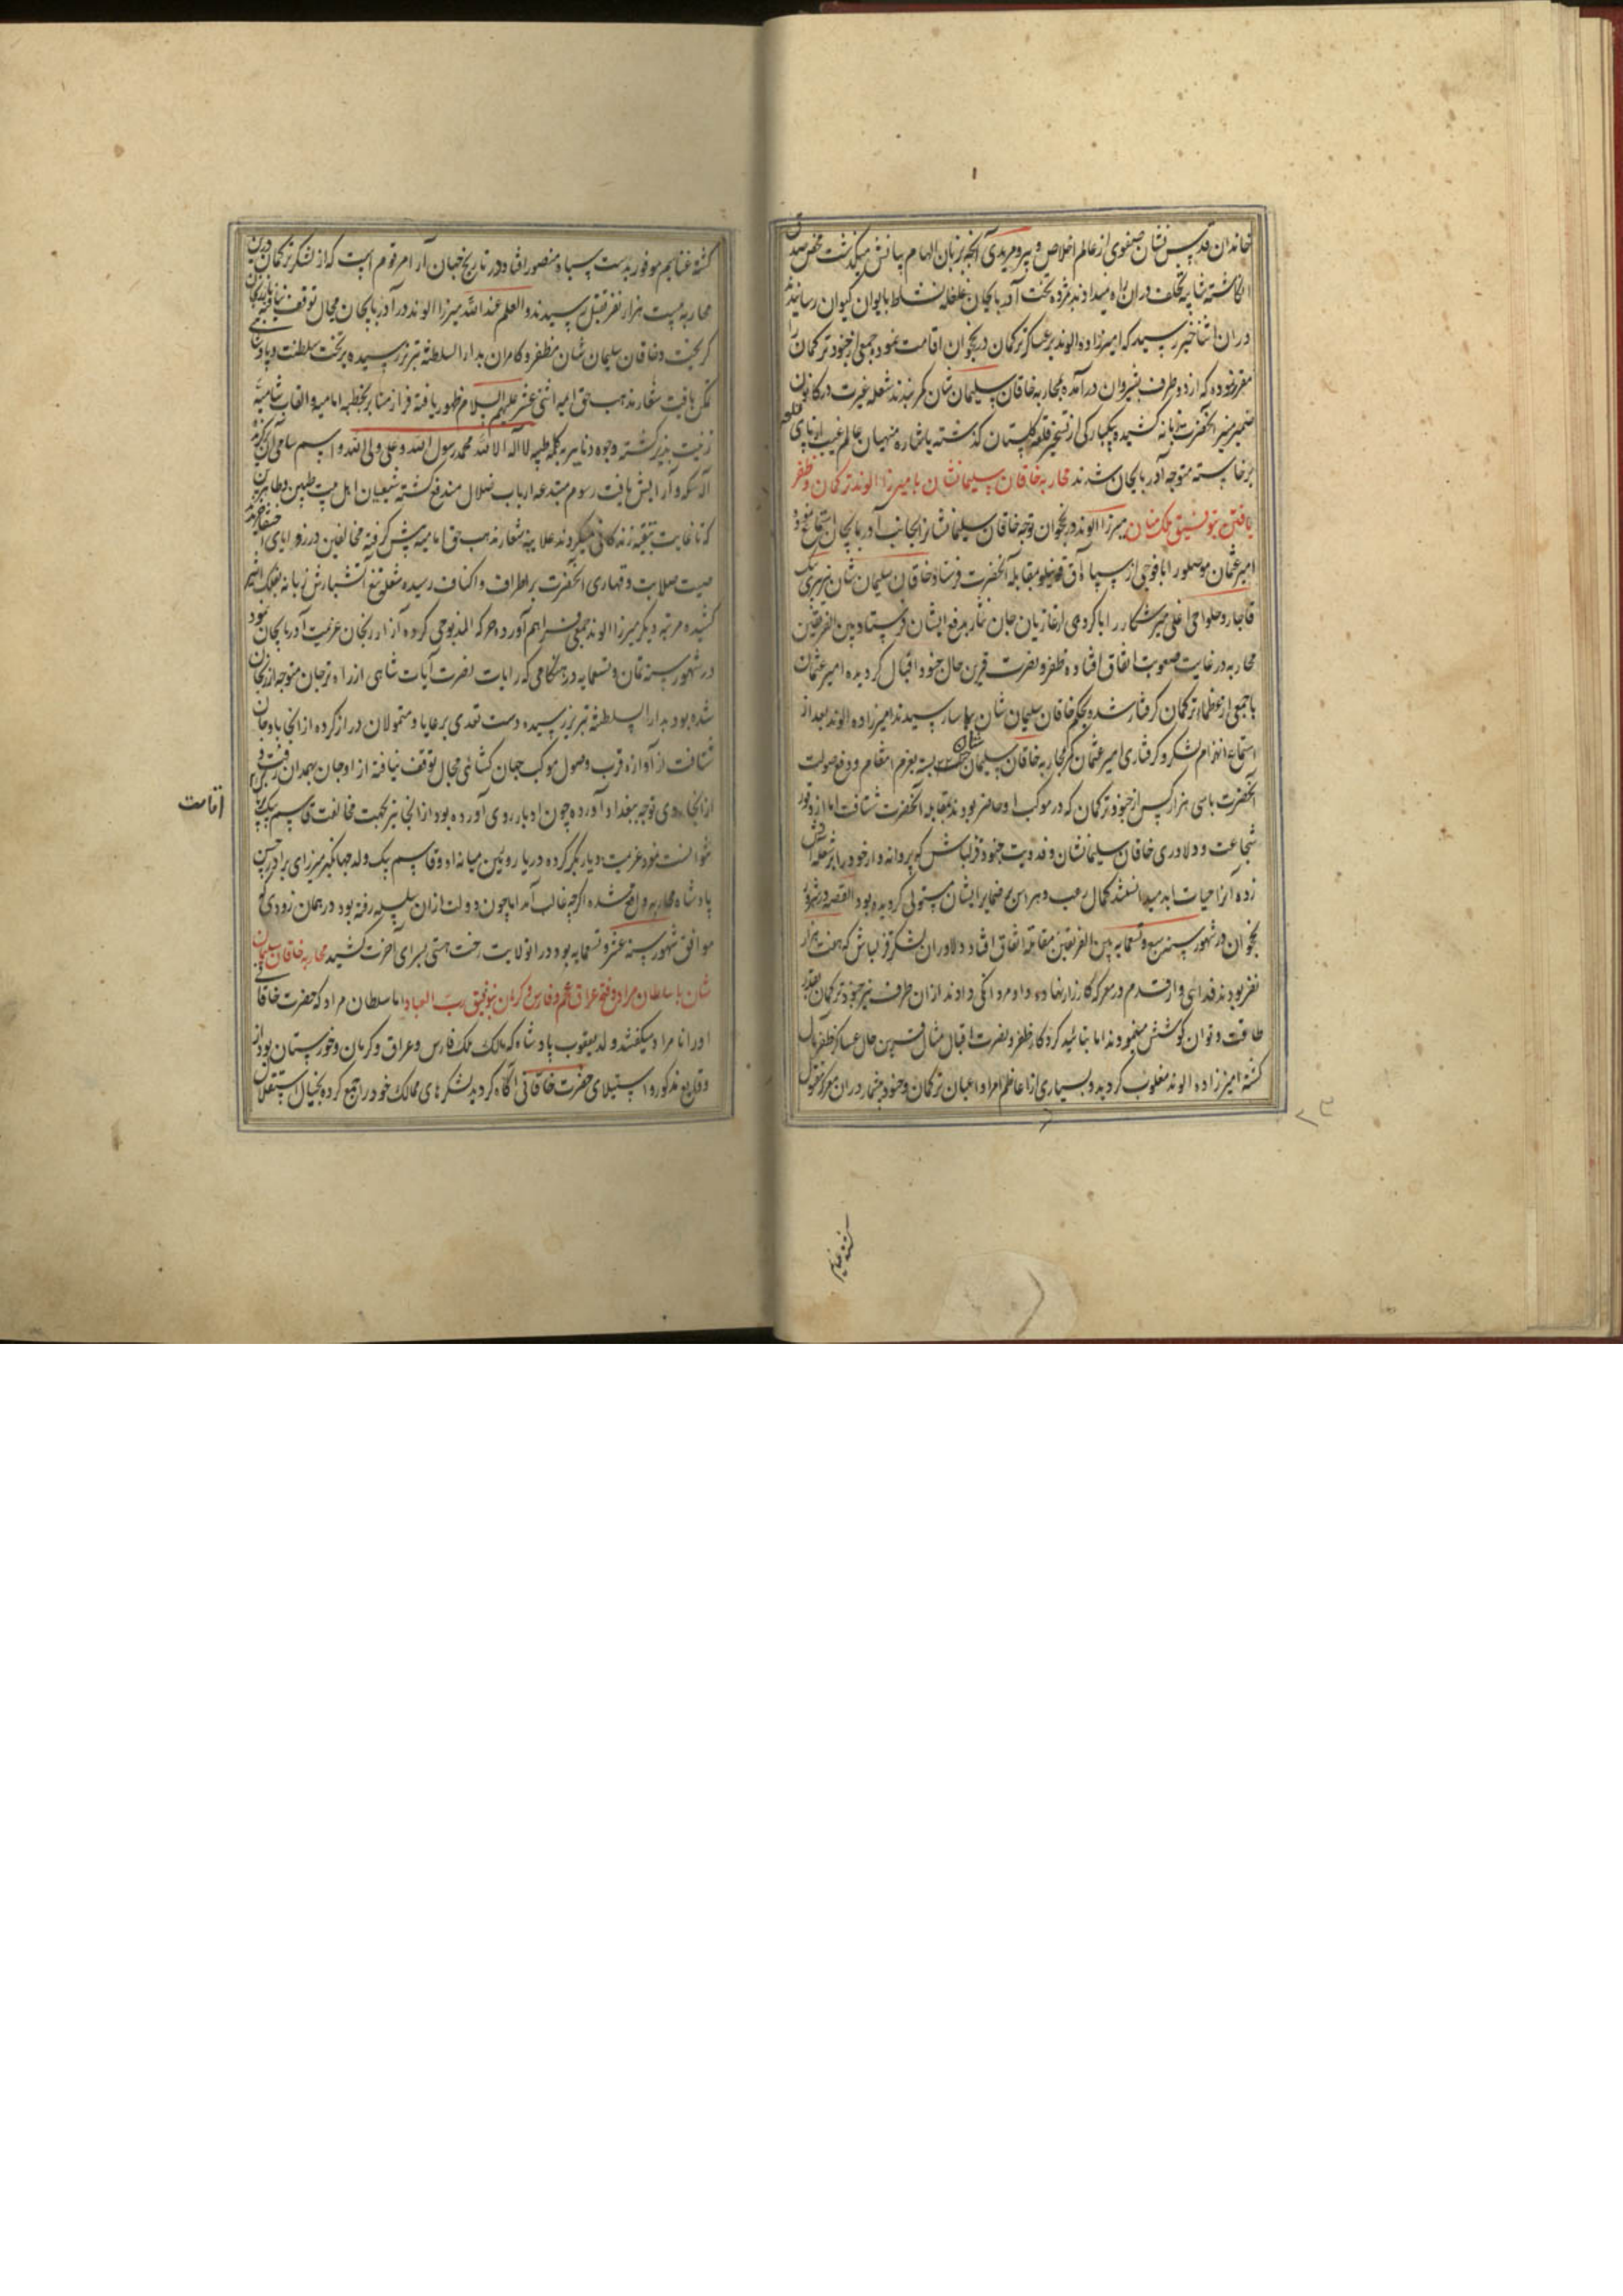 خاندان قدس نشان صفوی از عالم اخلاص و پیر و مریدی آنچه بر زبان الهام بیانش میگذشت محض صدق
انگاشته شایبه تخلف در آن راه نمیدادند مژده تخت آذربایجان غلغله نشاط بایوان کیوان رسانیدند
در آن اثنا خبر رسید که امیرزاده الوند بر عساکر ترکمان در نخجوان اقامت نموده جمعی از جنود ترکمان را
مقرر نموده که از دو طرف بشیروان در آمده بمحاربه خاقان سلیمان شان کمر بندند شعله غیرت در کانون
ضمیر منیر آنحضرت زبانه کشیده یکبارکی از تسخیر قلعه گلستان گذشته باشاره منهیان عالم غیب از پای قلعه
برخاسته متوجه آذربایجان شدند محاربه خاقان سلیمانشان با میرزا الوند ترکمان و ظفر
یافتن بتوفیق ملک منان میرزا الوند در نخجوان توجه خاقان سلیمانشان از بجانب آذربایجان استماع نموده
امیر عثمان موصلو را با فوجی از سپاه آق قوینلو بمقابله آنحضرت فرستاد خاقان سلیمان شان پیری بیک
قاجار و حلواچی اغلی میرشکار را با کروهی از غازیان جان نثار بدفع ایشان فرستاد بین الفریقین
محاربه در غایت صعوبت اتفاق افتاده ظفر و نصرت قرین حال جنود اقبال گردیده امیر عثمان
با جمعی از عظماء ترکمان گرفتار شد و بحکم خاقان سلیمان شان بیاسا رسیدند امیرزاده الوند بعد از
استماع انهزام لشکر و گرفتاری امیر عثمان کمر محاربه خاقان سلیمان شان بسته بعزم انتقام و دفع صولت
آنحضرت با سی هزار کس از جنود ترکمان که در موکب او حاضر بودند بمقابله آنحضرت شتافت اما از وفور
شجاعت و دلاوری خاقان سلیمانشان و فدویت جنود قزلباش که پروانه وار خود را بر شعله آتش
زده آنرا حیات ابد میدانستند کمال رعب و هراس بر ضمایر ایشان مستولی گردیده بود القصه در شرور
نخجوان در شهور سنه سبع و تسعمایه بین الفریقین مقاتله اتفاق افتاد دلاوران لشکر قزلباش که هفت هزار
نفر بودند فدائی وار قدم در معرکه کارزار نهاده داد مردانگی دادند از آن طرف نیز جنود ترکمان بقدر
طاقت و توان کوشش مینمودند اما بتائید کردگار ظفر و نصرت اقبال مثال قرین حال عساکر ظفر مآل
گشته امیرزاده الوند مغلوب گردید و بسیاری از اعاظم امرا و اعیان ترکمان و جنود بیشمار در آن معرکه مقتول
گشته غنایم
گشته غنایم موفور بدست سپاه منصور افتاد و در تاریخ جهان آرا مرقوم است که از لشکر ترکمان درین
محاربه بیست هزار نفر بقتل رسیدند و العلم عند الله میرزا الوند در آذربایجان مجال توقف نیافته
گریخت و خاقان سلیمان شان مظفر و کامران بدار السلطنه تبریز رسیده بر تخت سلطنت و پادشاهی
تمکن یافت شعار مذهب حق امیه اثنی عشر علیهم السلام ظهور یافته فراز منابر بخطبه امامیه و القاب شاهیه
زینت پذیر گشته وجوه دنانیر به کلمه طیبه لا اله الا الله محمد رسول الله و علی ولی الله و اسم سامی آن
آرایش یافت رسوم مبتدعه ارباب ضلال مندفع گشته شیعیان اهل بیت طیبین و طاهرین
که تا غایت بتقیه زندگانی میکردند علانیه شعار مذهب حق امامیه پیش گرفته مخالفین در زوایای اختفا خزیدند
صیت صلابت و قهاری آنحضرت بر اطراف و اکناف رسیده شعله تیغ آتشبارش زبانه بفلک اثیر
کشیده مرتبه دیگر میرزا الوند جمعی فراهم آورده حرکة المذبوحی کرده از ارزنجان عزیمت آذربایجان نمود
در شهور سنه ثمان و تسعمایه در هنگامی که رایات نصرت آیات شاهی از راه ترجان متوجه ارزنجان
شده بود بدار السلطنه تبریز رسیده دست تعدی بر عایا و متمولان دراز کرده از آنجا باوجان
شتافت از آوازه قرب وصول موکب جهان گشائی مجال توقف نیافته از اوجان بهمدان رفت و
از آنجا روی توجه ببغداد آورده چون ادبار روی آورده بود از آنجا نیز بجهت مخالفت قاسم بیک
نتوانست نمود عزیمت دیار بکر کرده در یار وئین میانه او و قاسم بیک ولد جهانگیر میرزای برادر حسن
پادشاه محاربه واقع شده اگرچه غالب آمد اما چون دولت از آن سلسله رفته بود در همان زودی که
موافق شهور سنه عشر و تسعمایه بود در آن ولایت رخت هستی بسرای آخرت کشید محاربه خاقان سلیمان
شان با سلطان مراد و فتح عراق عجم و فارس و کرمان بتوفیق رب العباد اما سلطان مراد که حضرت خاقانی
او را نامراد میگفتند ولد یعقوب پادشاه که مالک ملک فارس و عراق و کرمان و خوزستان بود از
وقایع مذکوره و استیلای حضرت خاقانی آگاه گردید لشکرهای ممالک خود را جمع کرده بخیال استقلال
اقامت